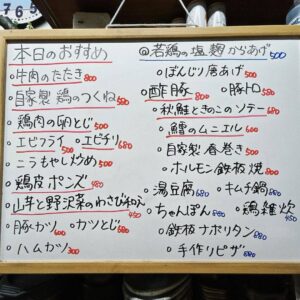 本日のおすすめ
○牛肉のたたき 800
○自家製 鶏のつくね 550
○鶏肉の卵とじ 500
○エビフライ 500 ○エビチリ 680
○ニラもやし炒め 500
○鶏皮ポンズ 480
○山芋と野沢菜のわさび和え 450
○豚カツ 600 ○カツとじ 680
○ハムカツ 300
◎若鶏の塩麹からあげ 500
○ぼんじり唐あげ 500
○酢豚 800 ○豚トロ 580
○秋鮭ときのこのソテー 680
○鱈のムニエル 600
○自家製春巻き 500
○ホルモン鉄板焼 800
○湯豆腐 680 ○キムチ鍋 680
○ちゃんぽん 880 ○鶏雑炊 450
○鉄板ナポリタン 880
○手作りピザ 880